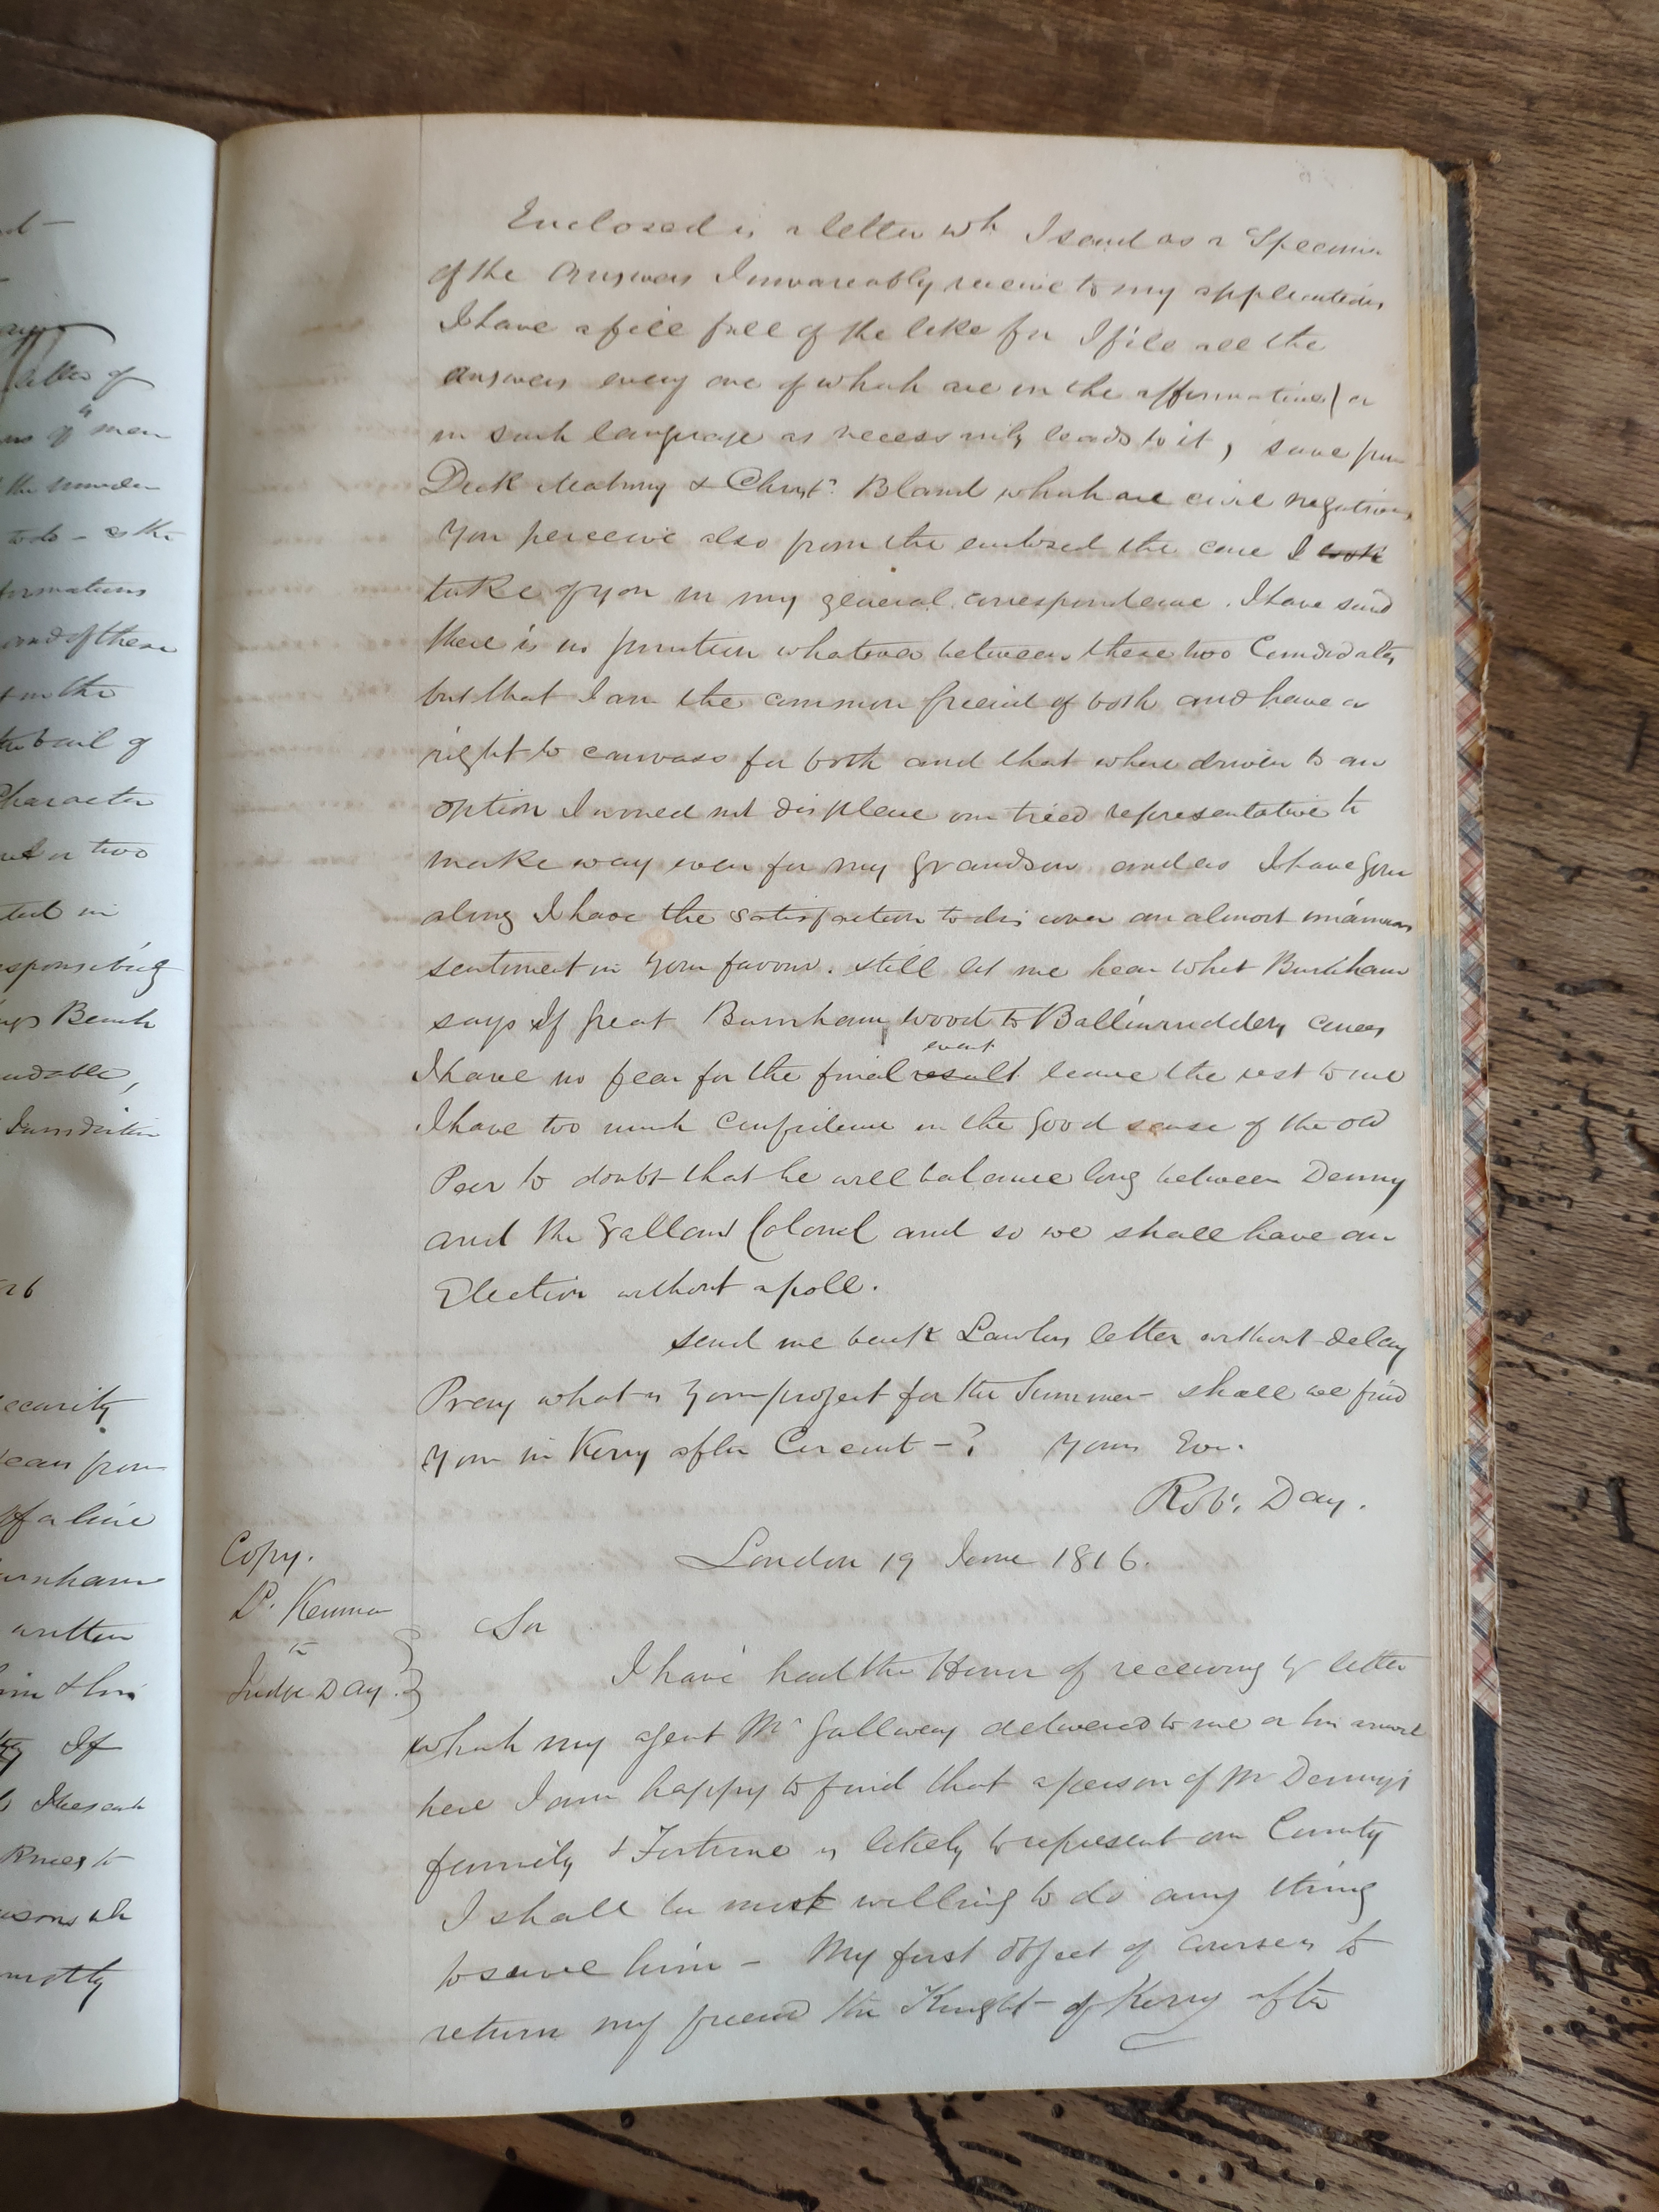 Enclosed is a letter wh I send as a Specimen
of the Answers I invareably receive to my applications
I have a file full of the like for I file all the
answers every one of which are in the affirmative / or
in such language as necessarily leads to it, save from
Dick & Christr. Bland which are civil negatives
You perceive also from the enclosed the care I took
take of you in my general correspondence. I have said
there is no junction whatever between these two Candidates
but that I am the common freind of both and have a
right to canvass for both and that where driven to an
option I would not displace our tried representative to
make way even for my Grandson and as I have gone
along I have the satisfaction to discover an almost unanimous
sentiment in your favour. still let me hear what Burnham
says If great Burnham wood to Ballinruddery comes
event
I have no fear for the final result leave the rest to me
I have too much confidence in the good sense of the old
Peer to doubt that he will balance long between Denny
and the Gallant Colonel and so we shall have an
Election without a poll.
send me back Lawlors letter without delay
Pray what is your project for the Summer - shall we find
you in Kerry after Circuit - ? Yours Ever.
Robt. Day.
Copy.
London 19 June 1816.
Ld. Kenmare
to
Judge Day.
Sir
I have had the Honor of receiving yr letter
which my agent Mr Gallwey delivered to me on his arrival
here I am happy to find that a person of Mr Denny's
family & Fortune is likely to represent our County
I shall be most willing to do any thing
to serve him - My first object of course is to
return my freind the Knight of Kerry after